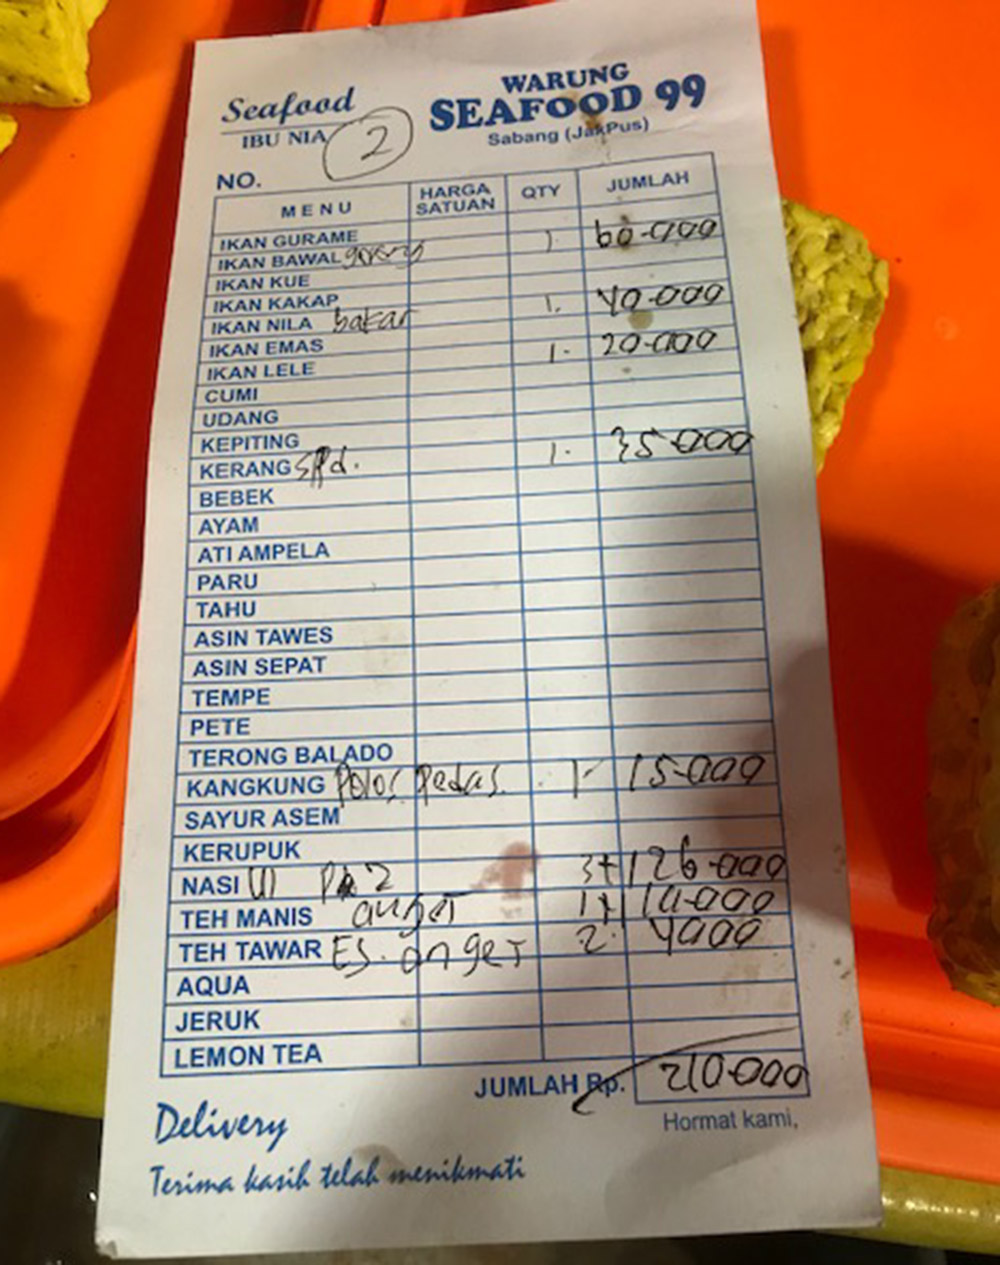 Seafood
IBU NIA
2
WARUNG
SEAFOOD 99
Sabang (JakPus)
NO.
MENU HARGA SATUAN QTY JUMLAH
IKAN GURAME 1. 60.000
IKAN BAWAL goreng
IKAN KUE
IKAN KAKAP 1. 40.000
IKAN NILA bakar
IKAN EMAS 1. 20.000
IKAN LELE
CUMI
UDANG
KEPITING 1. 35.000
KERANG
BEBEK
AYAM
ATI AMPELA
PARU
TAHU
ASIN TAWES
ASIN SEPAT
TEMPE
PETE
TERONG BALADO
KANGKUNG Polos Pedas. 1 15.000
SAYUR ASEM
KERUPUK
NASI U 2 3+1 26.000
TEH MANIS anget 1+1 10.000
TEH TAWAR ES. anget 2. 4000
AQUA
JERUK
LEMON TEA
JUMLAH Rp. 210.000
Delivery
Hormat kami,
Terima kasih telah menikmati